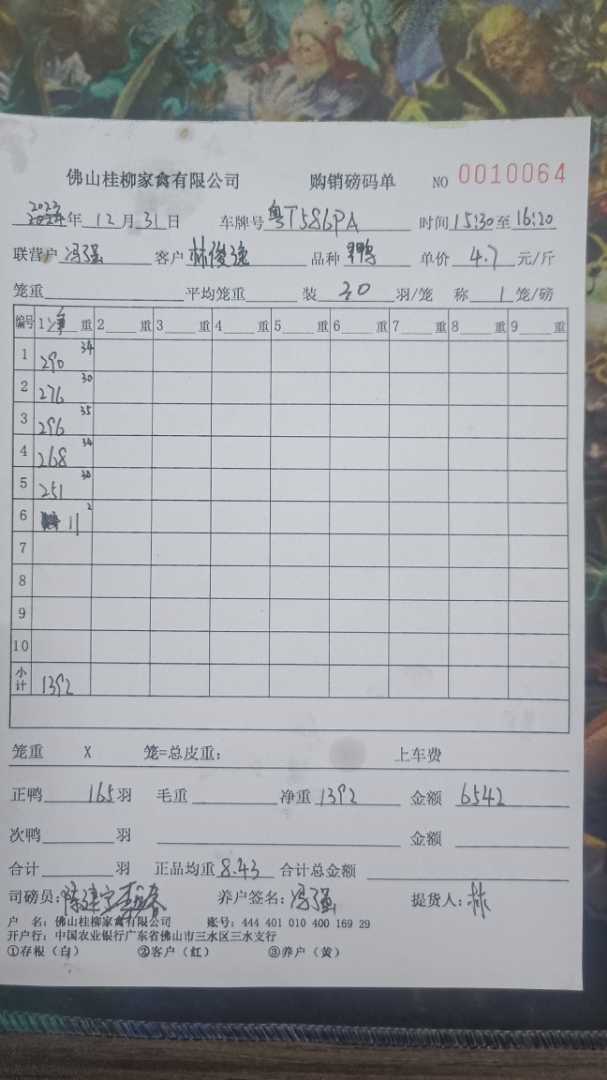 佛山桂柳家禽有限公司 购销磅码单 NO 0010064
2023年 12月31日 车牌号 粤T586PA 时间 15:30至16:20
联营户 冯强 客户 林俊逸 品种 鸭 单价 4.7 元/斤
笼重 平均笼重 装 30 羽/笼 称 1 笼/磅
编号 1 净 重 2 重 3 重 4 重 5 重 6 重 7 重 8 重 9 重
1 290 34
2 276 30
3 296 35
4 268 34
5 251 30
6 11 2
7
8
9
10
小计 1392
笼重 X 笼=总皮重: 上车费
正鸭 165羽 毛重 净重 1392 金额 6542
次鸭 羽 金额
合计 羽 正品均重 8.43 合计总金额
司磅员: 养户签名: 冯强 提货人: 林
户 名: 佛山桂柳家禽有限公司 账号: 444 401 010 400 169 29
开户行: 中国农业银行广东省佛山市三水区三水支行
①存根（白） ②客户（红） ③养户（黄）